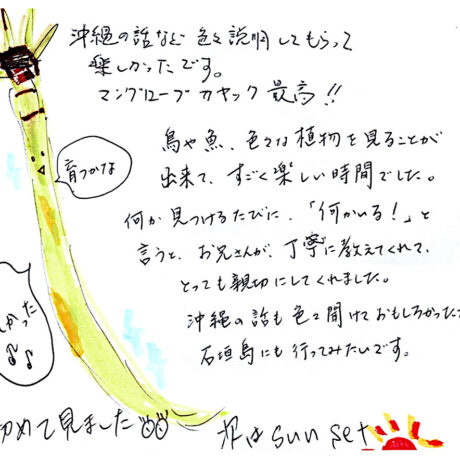 沖縄の話など色々説明してもらって
楽しかったです。
マングローブカヤック最高!!
育つかな
鳥や魚、色々な植物を見ることが
出来て、すごく楽しい時間でした。
何か見つけるたびに、「何かいる!」と
言うと、お兄さんが、丁寧に教えてくれて、
とっても親切にしてくれました。
沖縄の話も色々聞けておもしろかった
石垣島にも行ってみたいです。
かった
初めて見ました
次は sun set